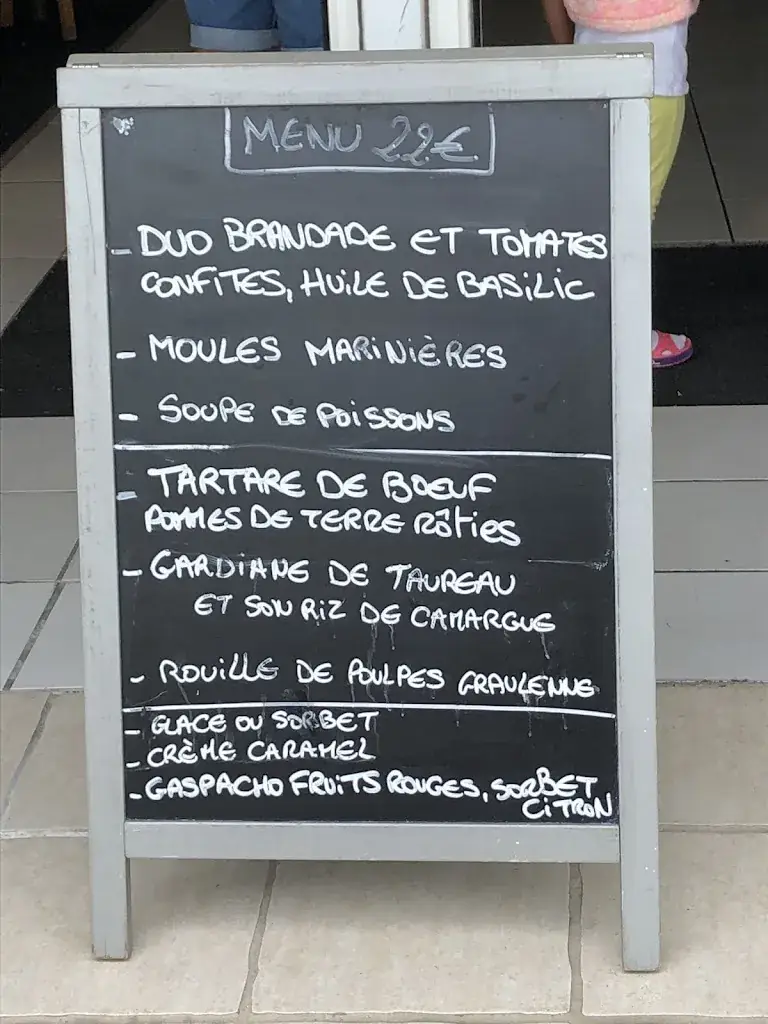 MENU 22€
- DUO BRANDADE ET TOMATES
CONFITES, HUILE DE BASILIC
- MOULES MARINIÈRES
- SOUPE DE POISSONS
- TARTARE DE BOEUF
POMMES DE TERRE RÔTIES
- GARDIANE DE TAUREAU
ET SON RIZ DE CAMARGUE
- ROUILLE DE POULPES GRAULENNE
- GLACE OU SORBET
- CRÈME CARAMEL
- GASPACHO FRUITS ROUGES, SORBET
CITRON